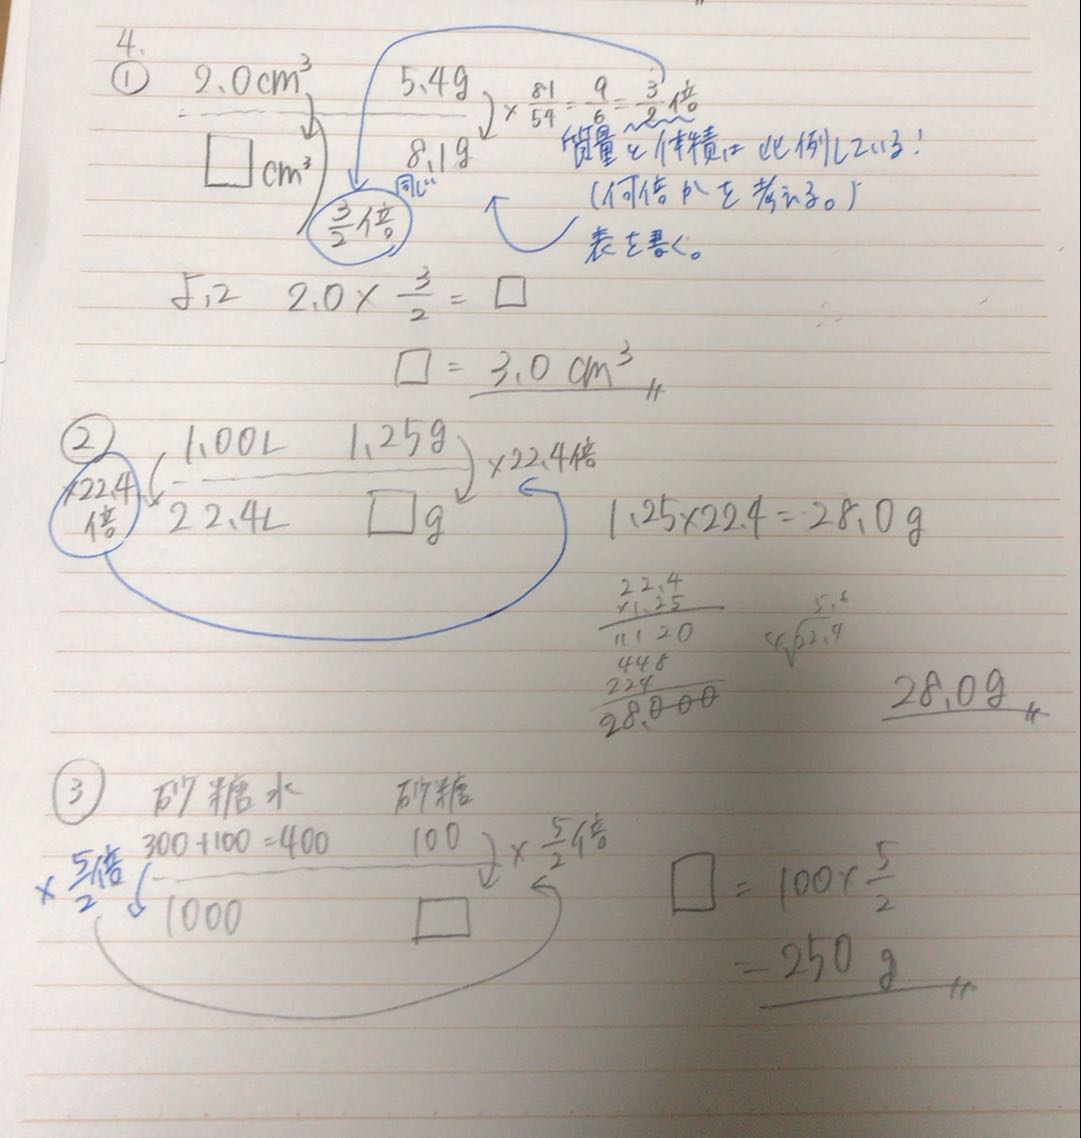 4.
① 2.0cm³ 5.4g × 81/54 = 9/6 = 3/2倍
□cm³ 8.1g
質量と体積は比例している!
同じ
(何倍かを考える。)
3/2倍
表を書く。
よって 2.0 × 3/2 = □
□ = 3.0 cm³
② 1.00L 1.25g ×22.4倍
×22.4倍 22.4L □g
1.25×22.4=28.0g
22.4
×1.25
1120
448
224
28.000
5.6
4√22.4
28.0g
③ 砂糖水 砂糖
300+100=400 100 × 5/2倍
× 5/2倍
1000 □
□ = 100× 5/2
= 250 g